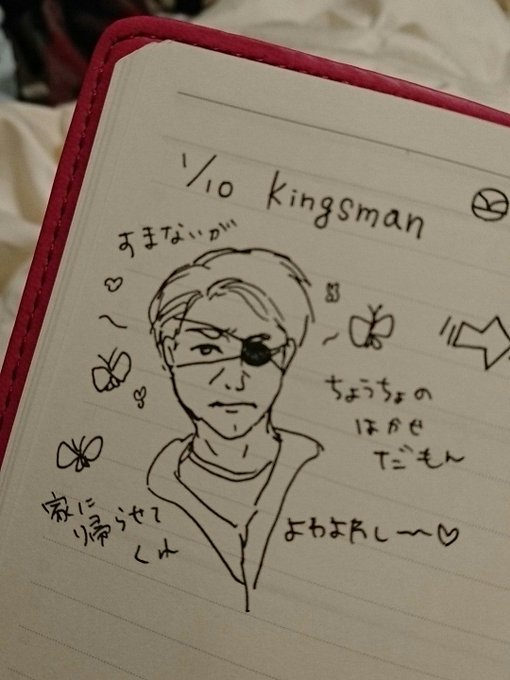 1/10 Kingsman
すまないが
ちょうちょの
はかせ
だもん
家に
帰らせて
くれ
よわよわし〜〜♡